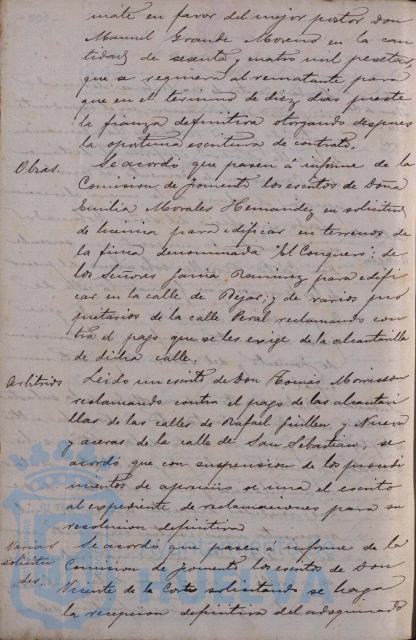 mate en favor del mejor postor Don
Manuel Grande Moreno en la can-
tidad de sesenta y cuatro mil pesetas,
que se requiera al rematante para
que en el termino de diez dias preste
la fianza definitiva otorgando despues
la oportuna escritura de contrato.
Obras. Se acordó que pasen á informe de la
Comision de fomento los escritos de Doña
Emilia Morales Hernandez en solicitud
de licencia para edificar en terrenos de
la finca denominada "El Conquero"; de
los Señores Ramirez para edifi
car en la calle de Bejar; y de varios pro
pietarios de la calle Peral reclamando con
tra el pago que se les exige de la alcantarilla
de dicha calle.
Arbitrios Leido un escrito de Don Tomás Morrisson
reclamando contra el pago de las alcantari
llas de las calles de Rafael Guillen y Nueva
y aceras de la calle de San Sebastian, se
acordó que con suspension de los procedi
mientos de apremio se una el escrito
al expediente de reclamaciones para su
resolucion definitiva
Varias solicitu des. Se acordó que pasen á informe de la
Comision de fomento los escritos de Don
Vicente de la Corte solicitando se haga
la recepcion definitiva del adoquinado
HUELVA